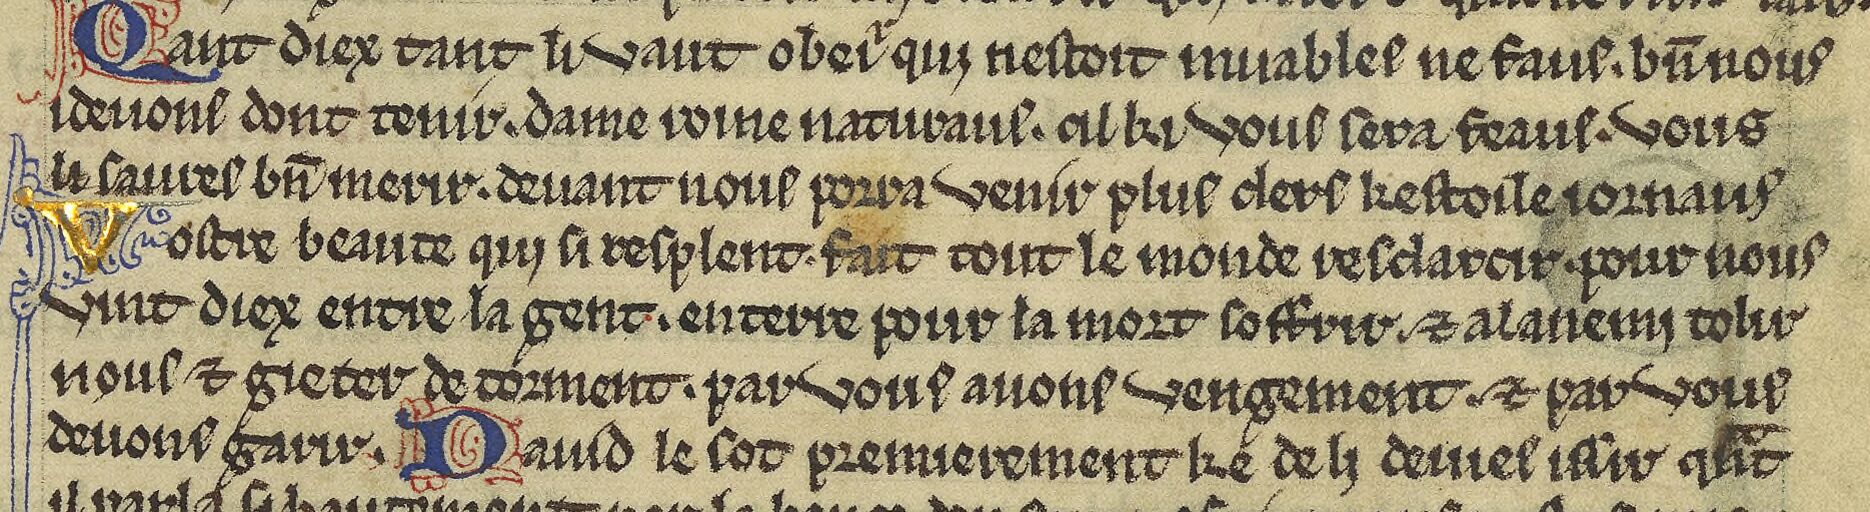 Qant diex tant li vaut obeir qui nestoit muables ne faus. bn̄ nous
i deuons dont tenir. dame roine naturaus. cil ki vous sera feaus. vous
li saures bn̄ merir. deuant nous porra venir plus clers kestoile iornaus
Vostre beaute qui si resplent. fait tout le monde resclarcir. pour nous
vint diex entre la gent. en terre pour la mort soffrir. ⁊ a lanemi tolir
nous ⁊ gieter de torment. par vous auons vengement. ⁊ par vous
deuons garir. Dauid le sot premierement ke de li deuies issir